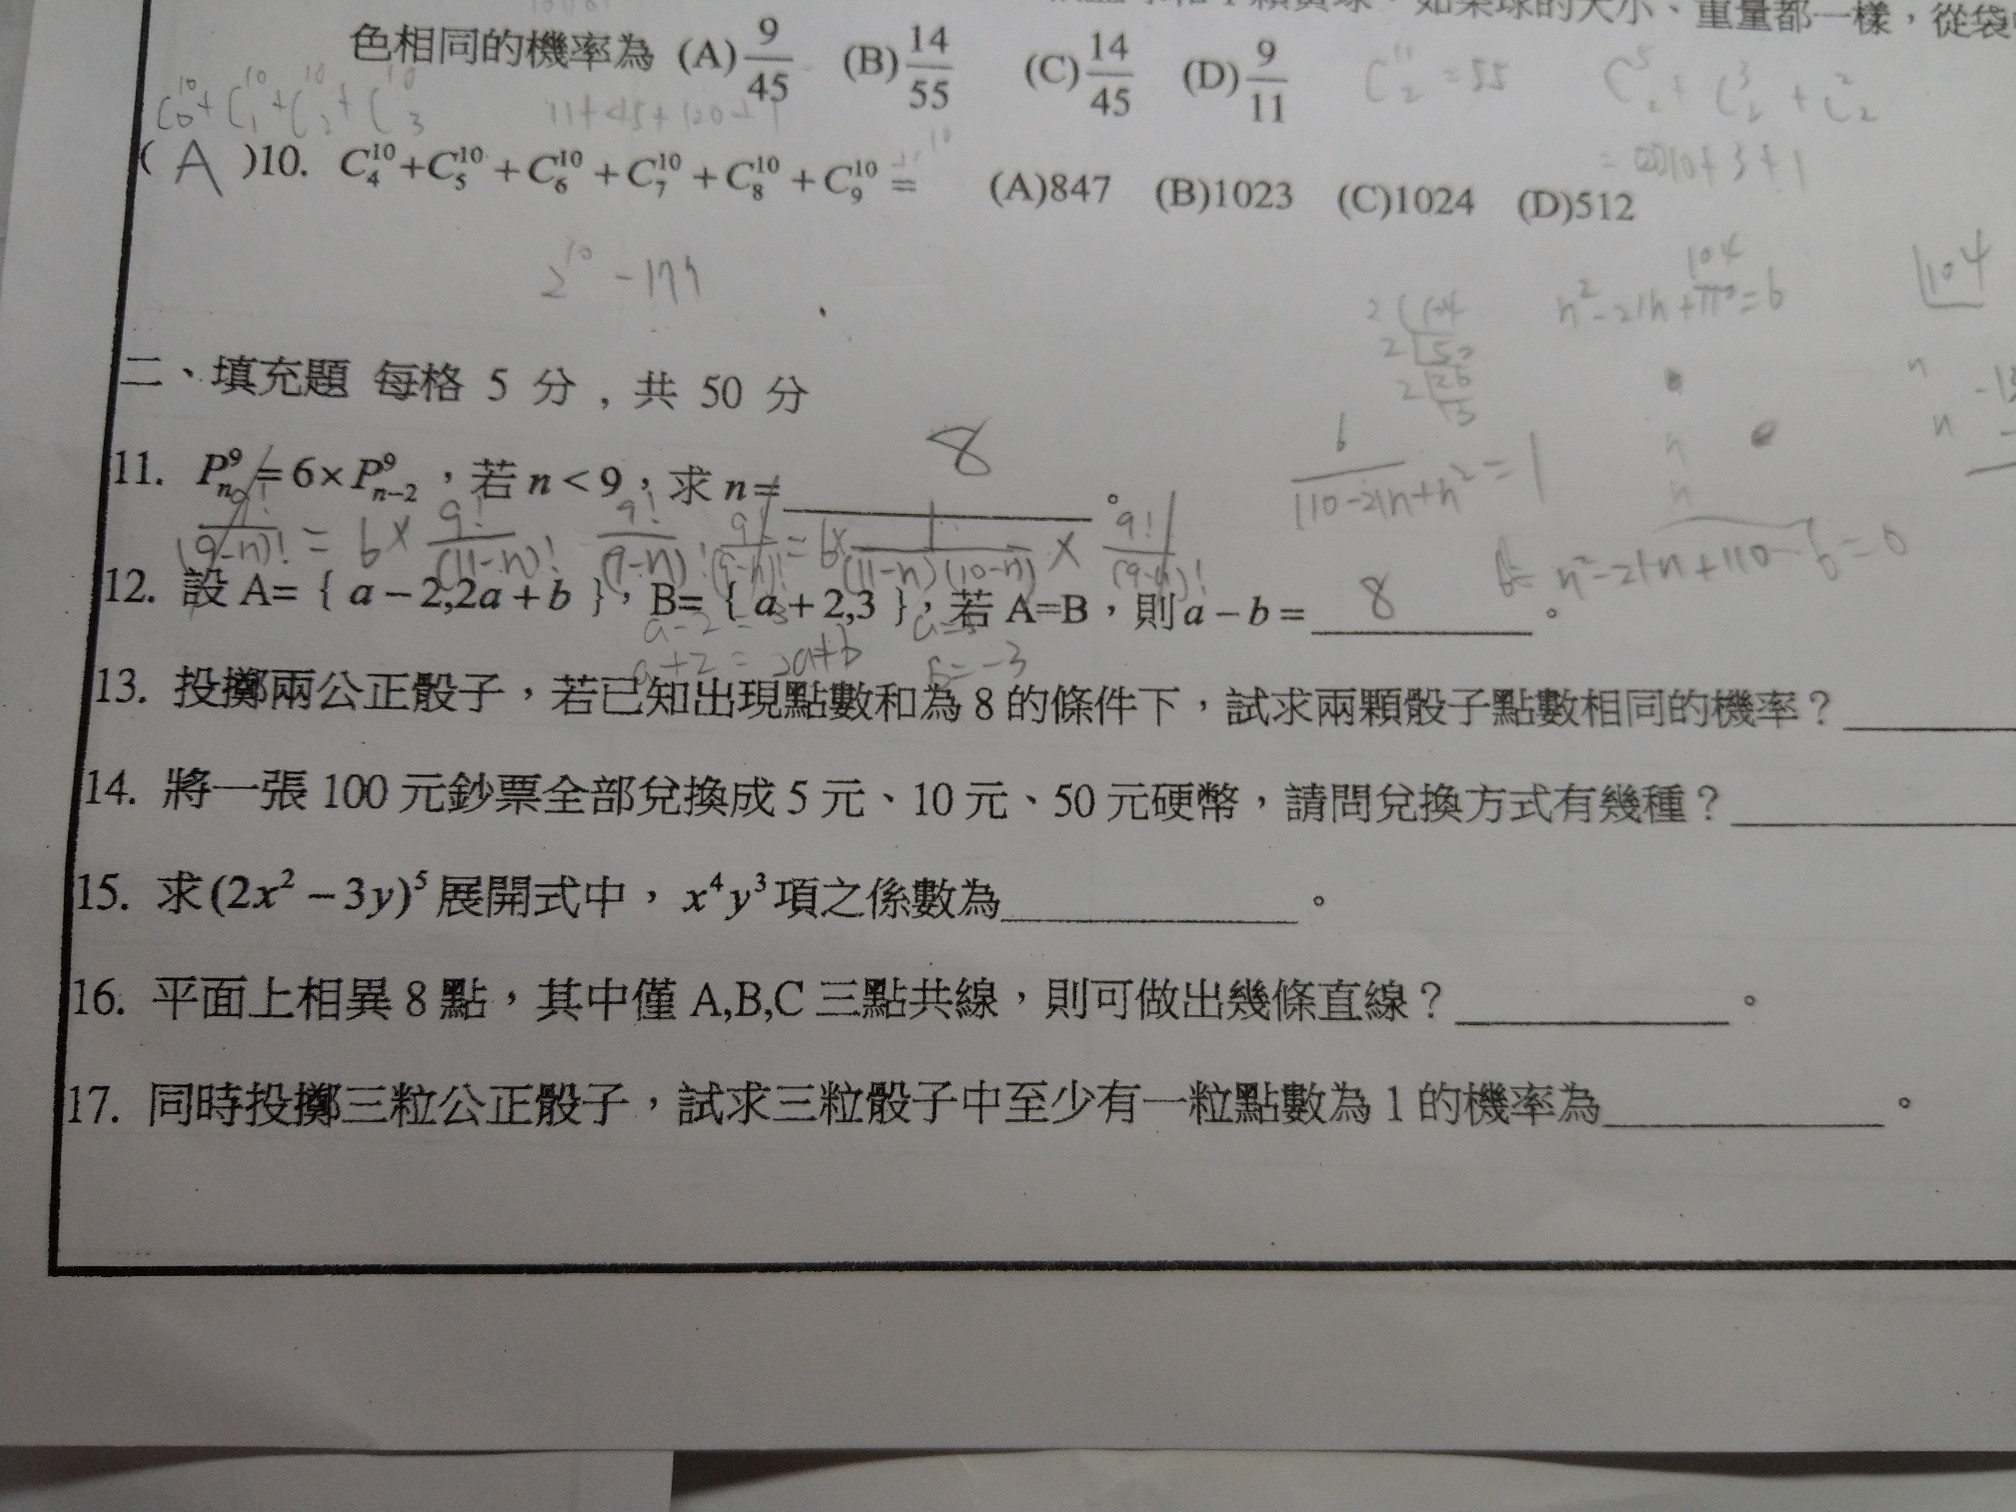 如果球的大小、重量都一樣，從袋
色相同的機率為 (A) 9/45 (B) 14/55 (C) 14/45 (D) 9/11
C¹¹₂ = 55 C⁵₂ + C³₂ + C²₂
C¹⁰₀ + C¹⁰₁ + C¹⁰₂ + C¹⁰₃
11+45+120+1
= 10+3+1
( A )10. C¹⁰₄+C¹⁰₅+C¹⁰₆+C¹⁰₇+C¹⁰₈+C¹⁰₉= (A)847 (B)1023 (C)1024 (D)512
2¹⁰ - 177
104
n²-21n+110=6
104
2 104
2 52
2 26
13
二、填充題 每格 5 分，共 50 分
11. P⁹ₙ=6×P⁹ₙ₋₂，若 n<9，求 n= 8 。
6/(110-21n+n²) = 1
9!/(9-n)! = 6× 9!/(11-n)! 9!/(9-n)! 9!/(9-n)! = 6× 1/(11-n)(10-n) × 9!/(9-n)!
n²-21n+110-6=0
12. 設 A=｛a-2,2a+b｝，B=｛a+2,3｝，若 A=B，則 a-b= 8 。
a-2=3 a=5
a+2=2a+b b=-3
13. 投擲兩公正骰子，若已知出現點數和為 8 的條件下，試求兩顆骰子點數相同的機率？
14. 將一張 100 元鈔票全部兌換成 5 元、10 元、50 元硬幣，請問兌換方式有幾種？
15. 求(2x²-3y)⁵展開式中，x⁴y³項之係數為 。
16. 平面上相異 8 點，其中僅 A,B,C 三點共線，則可做出幾條直線？ 。
17. 同時投擲三粒公正骰子，試求三粒骰子中至少有一粒點數為 1 的機率為 。